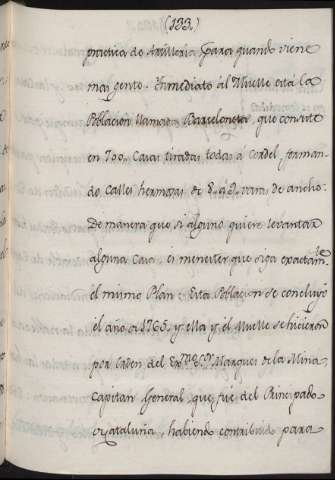 (133)
practica de Artilleria para quando viene
mas gente. Inmediato al Muelle està la
Poblacion llamada Barceloneta, que consiste
en 700, Casas tiradas todas à cordel, forman-
do calles hermosas de 8, à 9, varas de ancho:
De manera que si alguno quiere levantar
alguna Casa, es menester que siga exactam.te
el mismo Plan: Esta Poblacion se concluyò
el año de 1765, y ella y el Muelle se hicieron
por Orden del Ex.mo S.or Marques de la Mina,
Capitan General, que fue del Principado
de Cataluña, habiendo contribuido para